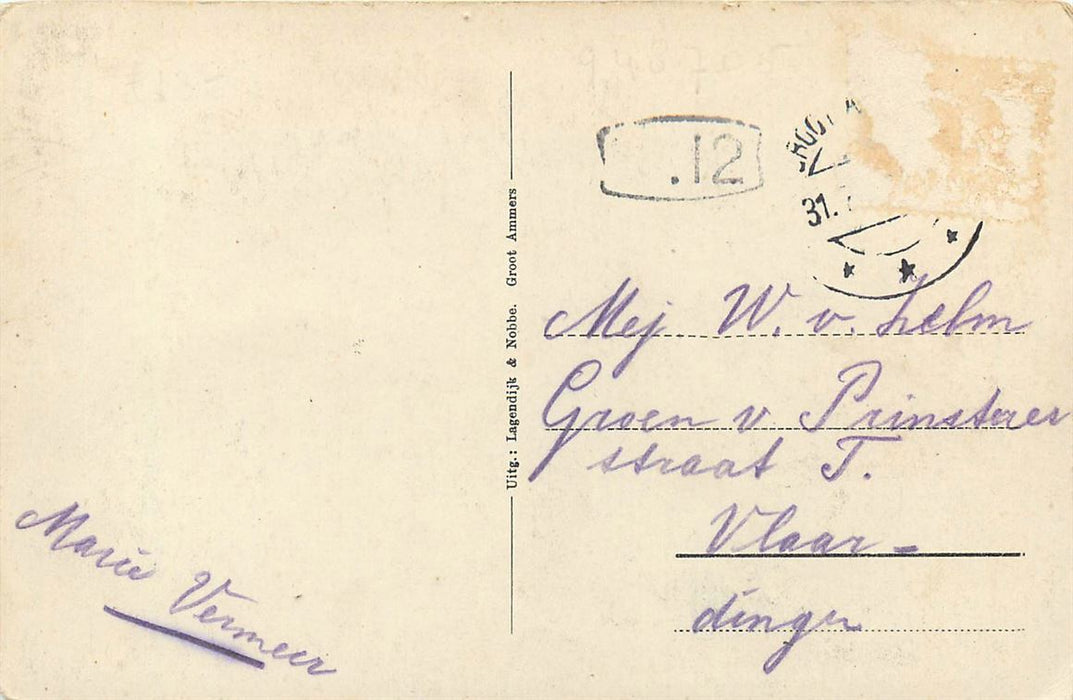 .12
31.
Mej. W. v. Helm
Groen v. Prinsterer
straat T.
Vlaar-
dingen
Marie Vermeer
Uitg.: Lagendijk & Nobbe. Groot Ammers